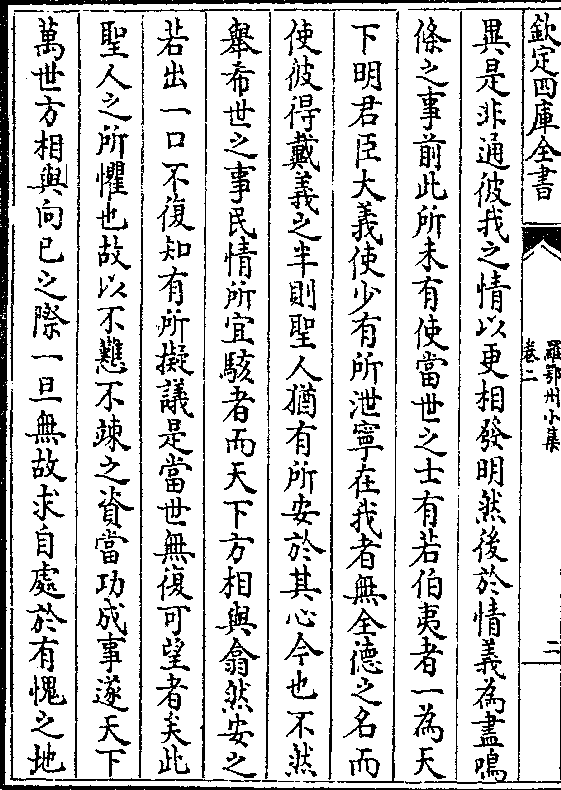 欽定四庫全書
羅鄂州小集
卷二
二
異是非通彼我之情以更相發明然後於情義為盡鳴
條之事前此所未有使當世之士有若伯夷者一為天
下明君臣大義使少有所泄寧在我者無全德之名而
使彼得戴義之半則聖人猶有所安於其心今也不然
舉希世之事民情所宜駭者而天下方相與翕然安之
若出一口不復知有所擬議是當世無復可望者矣此
聖人之所懼也故以不戁不竦之資當功成事遂天下
萬世方相與向已之際一旦無故求自處於有愧之地